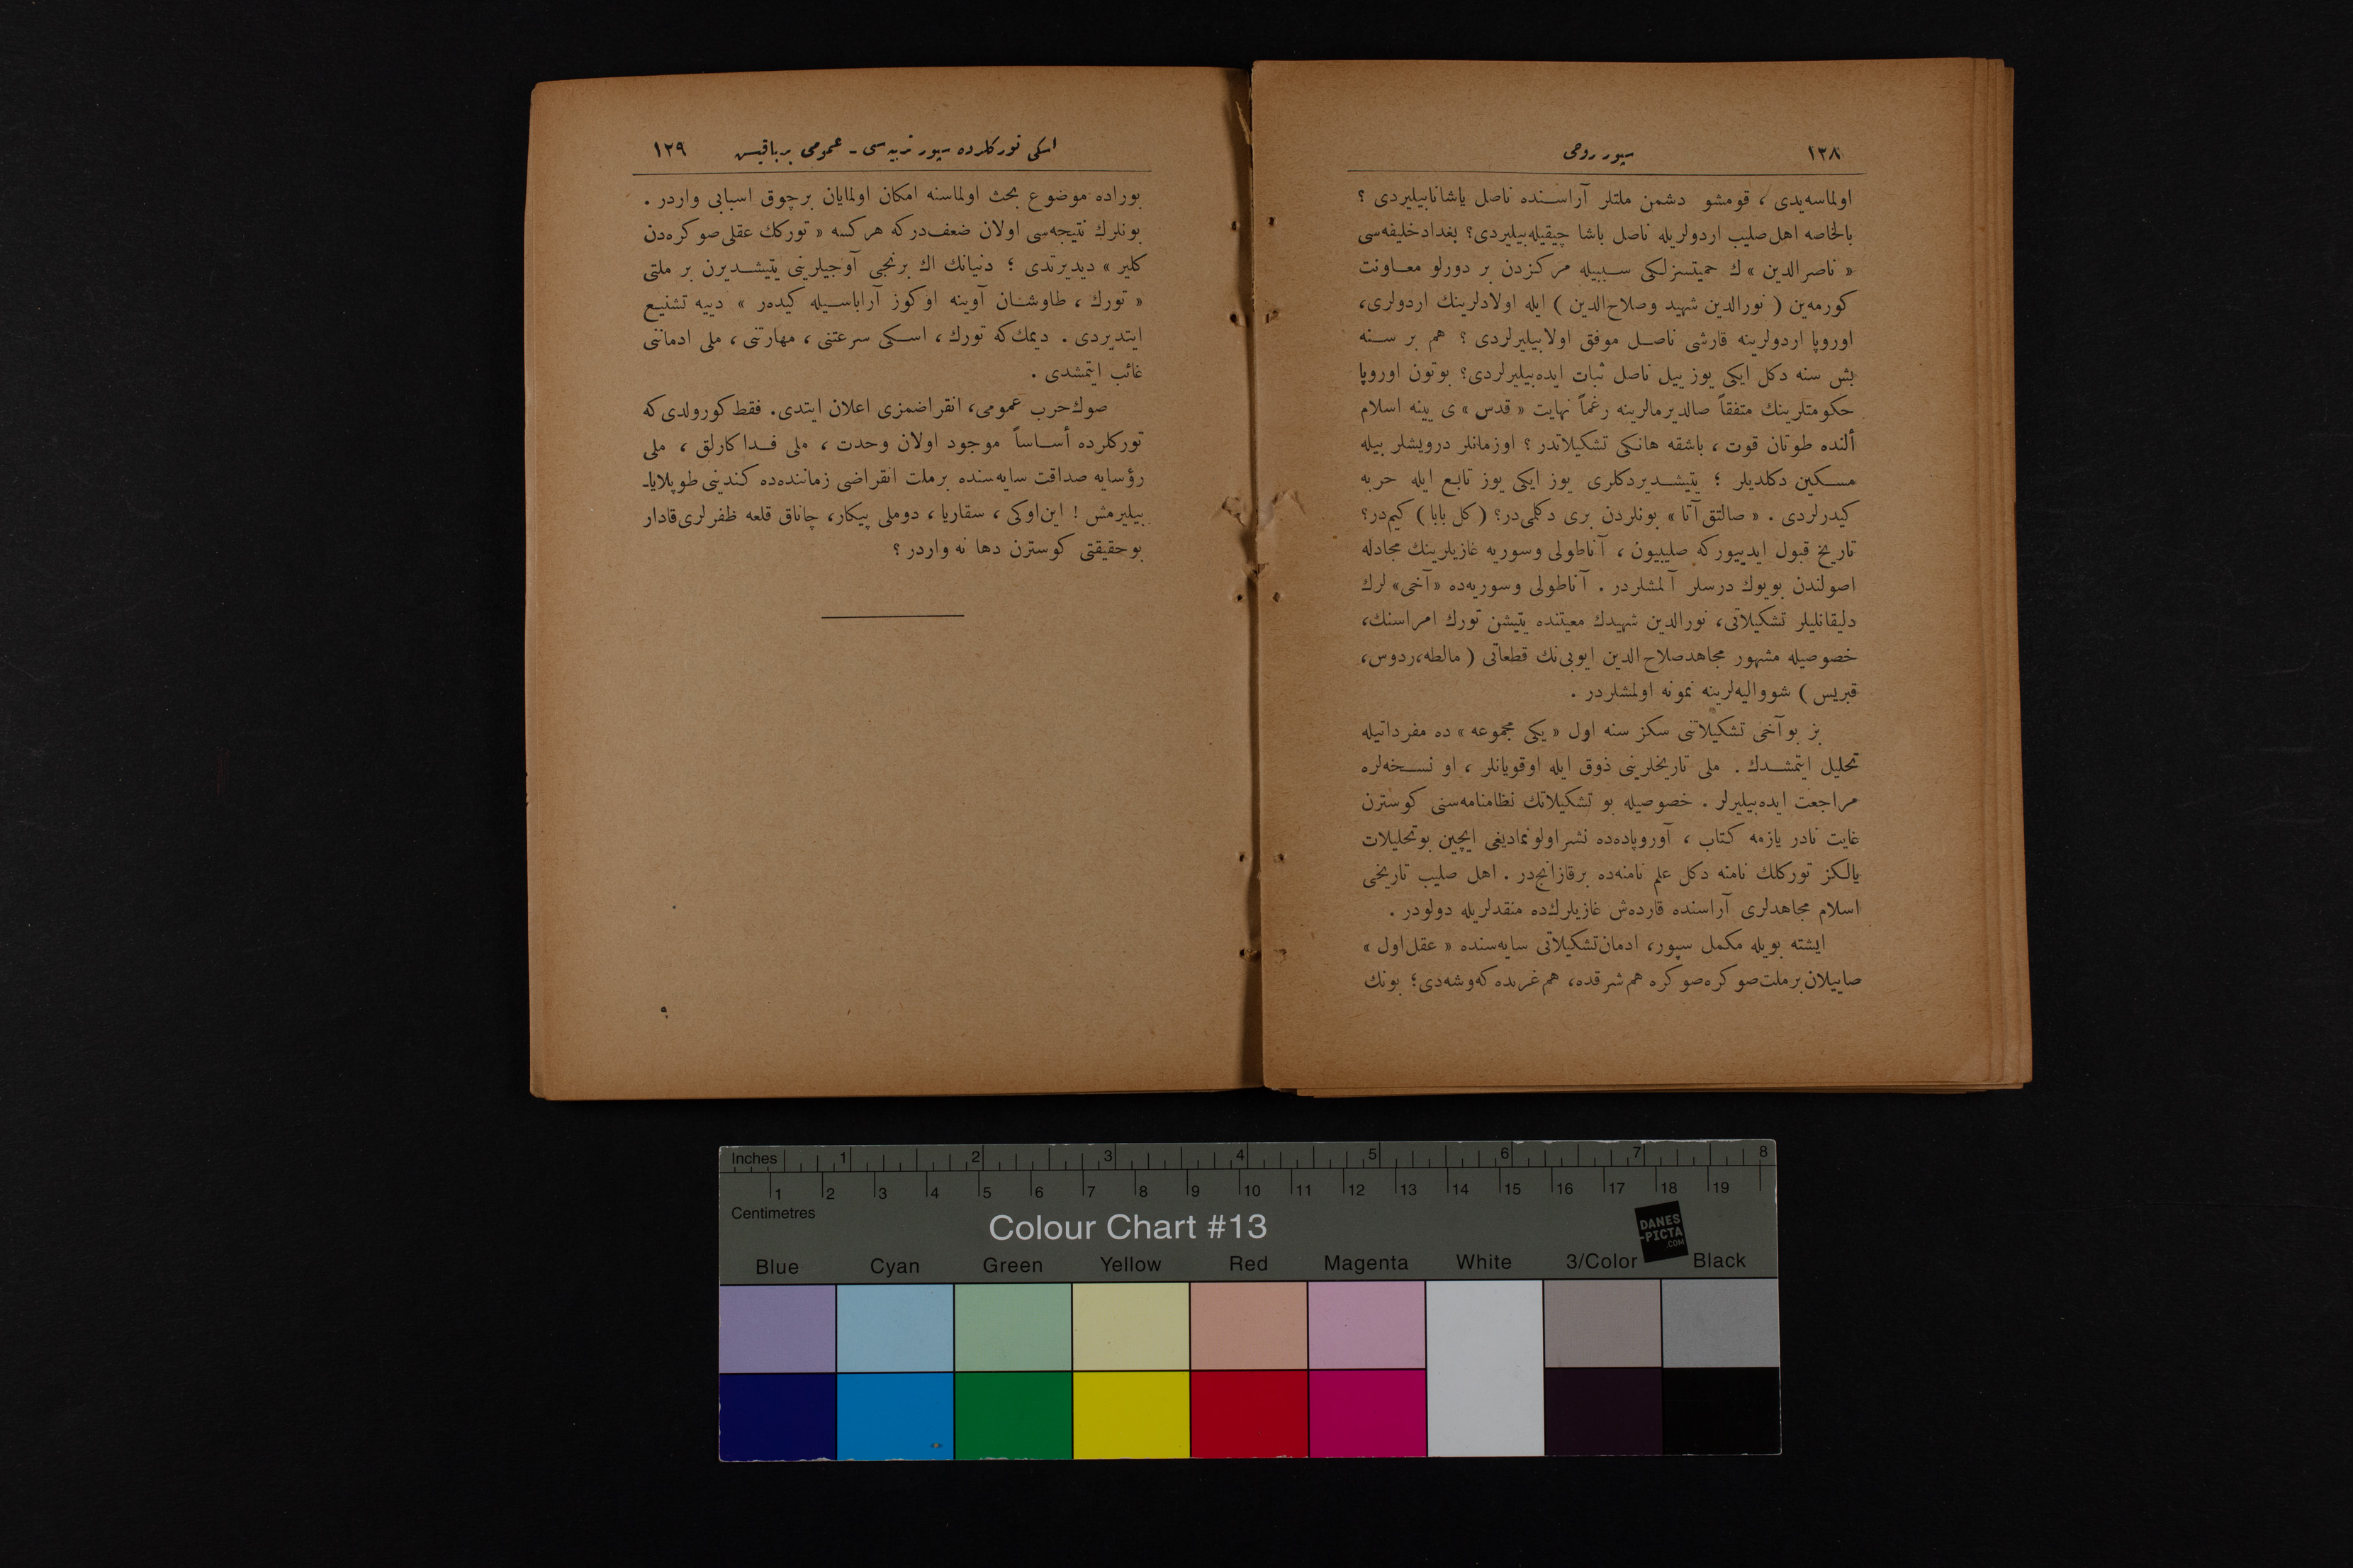 ١٢٨ سپور روحی
اولماسه‌یدی ، قومشو دشمن ملتلر آراسنده ناصل یاشانابیلیردی ؟
بالخاصه اهل صلیب اردولریله ناصل باشا چیقیله‌بیلیردی؟ بغداد خلیفه‌سی
« ناصرالدین » ك حمیتسزلکی سببیله مرکزدن بر دورلو معاونت
کورمه‌ین ( نورالدین شهید وصلاح‌الدین ) ایله اولادلرینك اردولری،
اوروپا اردولرینه قارشی ناصل موفق اولابیلیرلردی ؟ هم بر سنه
بش سنه دکل ایکی یوز ییل ناصل ثبات ایده‌بیلیرلردی؟ بوتون اوروپا
حکومتلرینك متفقاً صالدیرمالرینه رغماً نهایت « قدس » ی یینه اسلام
ألنده طوتان قوت ، باشقه هانکی تشکیلاتدر ؟ اوزمانلر درویشلر بیله
مسکین دکلدیلر ؛ یتیشدیردکلری یوز ایکی یوز تابع ایله حربه
کیدرلردی . « صالتق آتا » بونلردن بری دکلمی‌در؟ ( کل بابا ) کیم‌در؟
تاریخ قبول ایدییور که صلیبیون ، آناطولی وسوریه غازیلرینك مجادله
اصولندن بویوك درسلر آلمشلردر . آناطولی وسوریه‌ده «آخی» لرك
دلیقانلیلر تشکیلاتی، نورالدین شهیدك معیتنده یتیشن تورك امراسنك،
خصوصیله مشهور مجاهد صلاح‌الدین ایوبی‌نك قطعاتی ( مالطه،ردوس،
قبریس ) شووالیه‌لرینه نمونه اولمشلردر .
بز بو آخی تشکیلاتنی سکز سنه اول « یکی مجموعه » ده مفرداتیله
تحلیل ایتمشدك . ملی تاریخلرینی ذوق ایله اوقویانلر ، او نسخه‌لره
مراجعت ایده‌بیلیرلر . خصوصیله بو تشکیلاتك نظامنامه‌سنی کوسترن
غایت نادر یازمه کتاب ، آوروپاده‌ده نشر اولونمادیغی ایچین بوتحلیلات
یالکز تورکلك نامنه دکل علم نامنه‌ده برقازانج‌در . اهل صلیب تاریخی
اسلام مجاهدلری آراسنده قارده‌ش غازیلرك‌ده منقدلریله دولودر .
ایشته بویله مکمل سپور، ادمان تشکیلاتی سایه‌سنده « عقل اول »
صاییلان برملت صوکره صوکره هم شرقده، هم غربده که‌وشه‌دی؛ بونك
اسکی تورکلرده سپور تربیه‌سی ـ عمومی بر باقیش ١٢٩
بوراده موضوع بحث اولماسنه امکان اولمایان برچوق اسبابی واردر .
بونلرك نتیجه‌سی اولان ضعف‌درکه هر کسه « تورکك عقلی صوکره‌دن
کلیر » دیدیرتدی ؛ دنیانك اك برنجی آوجیلرینی یتیشدیرن بر ملتی
« تورك ، طاوشان آوینه اوکوز آراباسیله کیده‌ر » دییه تشنیع
ایتدیردی . دیمك‌که تورك ، اسکی سرعتنی ، مهارتنی ، ملی ادماننی
غائب ایتمشدی .
صوك حرب عمومی، انقراضمزی اعلان ایتدی. فقط کورولدی‌که
تورکلرده أساساً موجود اولان وحدت ، ملی فداکارلق ، ملی
رؤسایه صداقت سایه‌سنده برملت انقراضی زماننده‌ده کندینی طوپلایا‌ـ
بیلیرمش ! این‌اوکی ، سقاریا ، دوملی پیکار، چاناق قلعه ظفرلری‌قادار
بوحقیقتی کوسترن دها نه واردر ؟
٩
Inches 1 2 3 4 5 6 7 8
1 2 3 4 5 6 7 8 9 10 11 12 13 14 15 16 17 18 19
Centimetres
Colour Chart #13
DANES
-PICTA
.COM
Blue Cyan Green Yellow Red Magenta White 3/Color Black